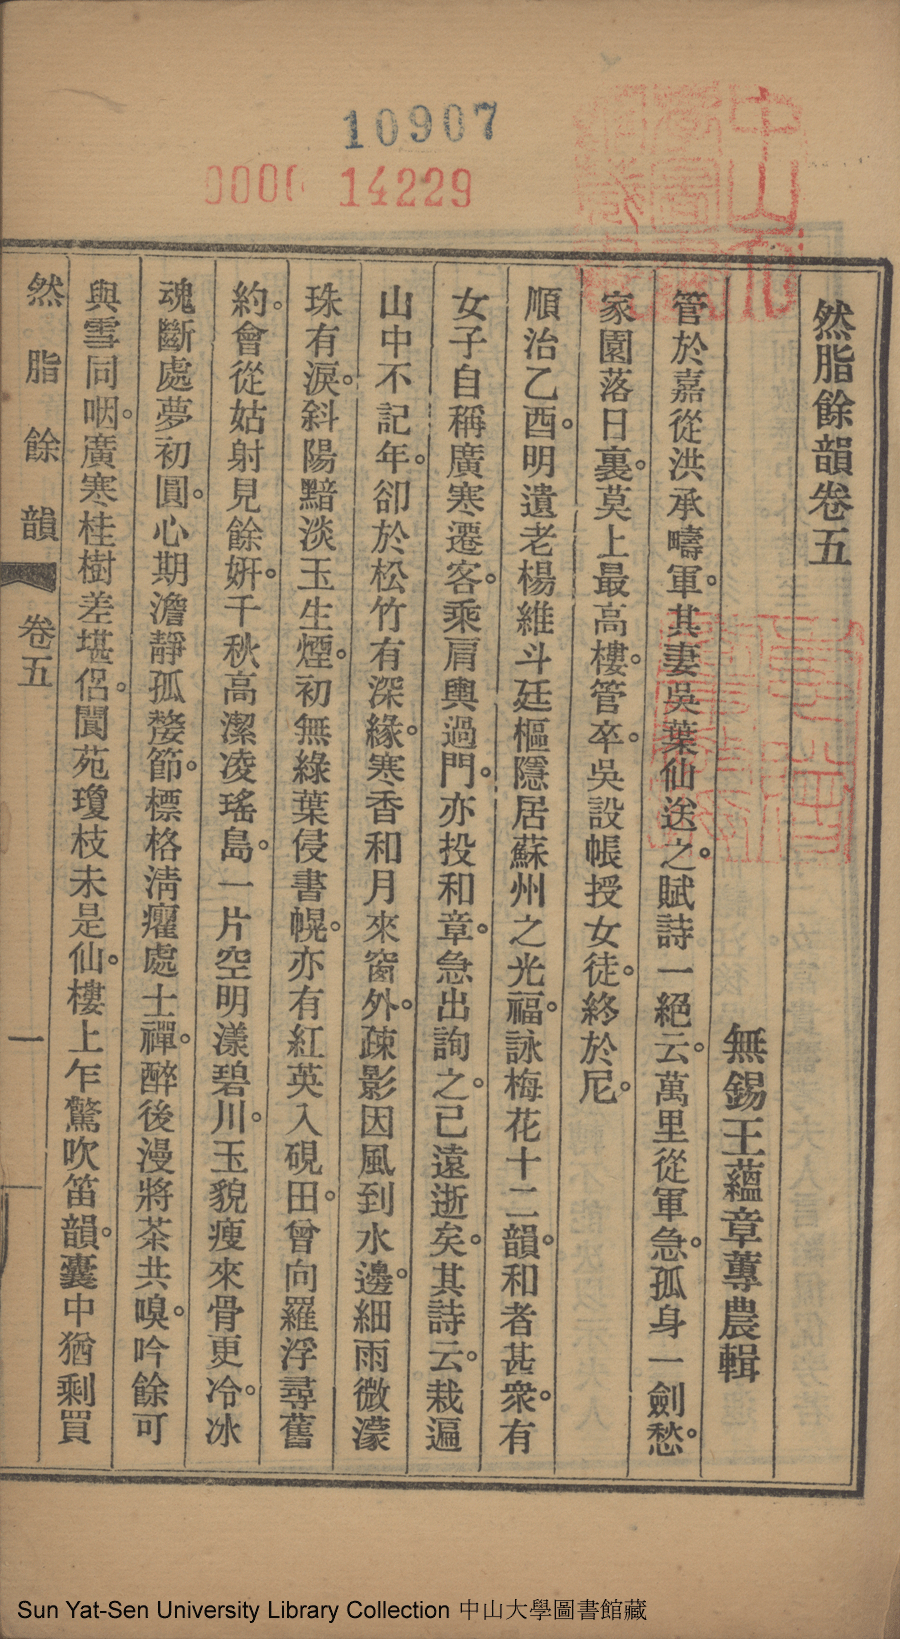 10907
14229
然脂餘韻卷五
無錫王蘊章蓴農輯
管於嘉從洪承疇軍。其妻吳葉仙送之。賦詩一絕云。萬里從軍急。孤身一劍愁。
家園落日裏。莫上最高樓。管卒。吳設帳授女徒。終於尼。
順治乙酉。明遺老楊維斗廷樞隱居蘇州之光福。詠梅花十二韻。和者甚衆。有
女子自稱廣寒遷客。乘肩輿過門。亦投和章。急出詢之。已遠逝矣。其詩云。栽遍
山中不記年。卻於松竹有深緣。寒香和月來窗外。疎影因風到水邊。細雨微濛
珠有淚。斜陽黯淡玉生煙。初無綠葉侵書幌。亦有紅英入硯田。曾向羅浮尋舊
約。會從姑射見餘妍。千秋高潔凌瑤島。一片空明漾碧川。玉貌瘦來骨更冷。冰
魂斷處夢初圓。心期澹靜孤嫠節。標格淸癯處士禪。醉後漫將茶共嗅。吟餘可
與雪同咽。廣寒桂樹差堪侶。閬苑瓊枝未是仙。樓上乍驚吹笛韻。囊中猶剩買
然脂餘韻 卷五 一
Sun Yat-Sen University Library Collection 中山大學圖書館藏